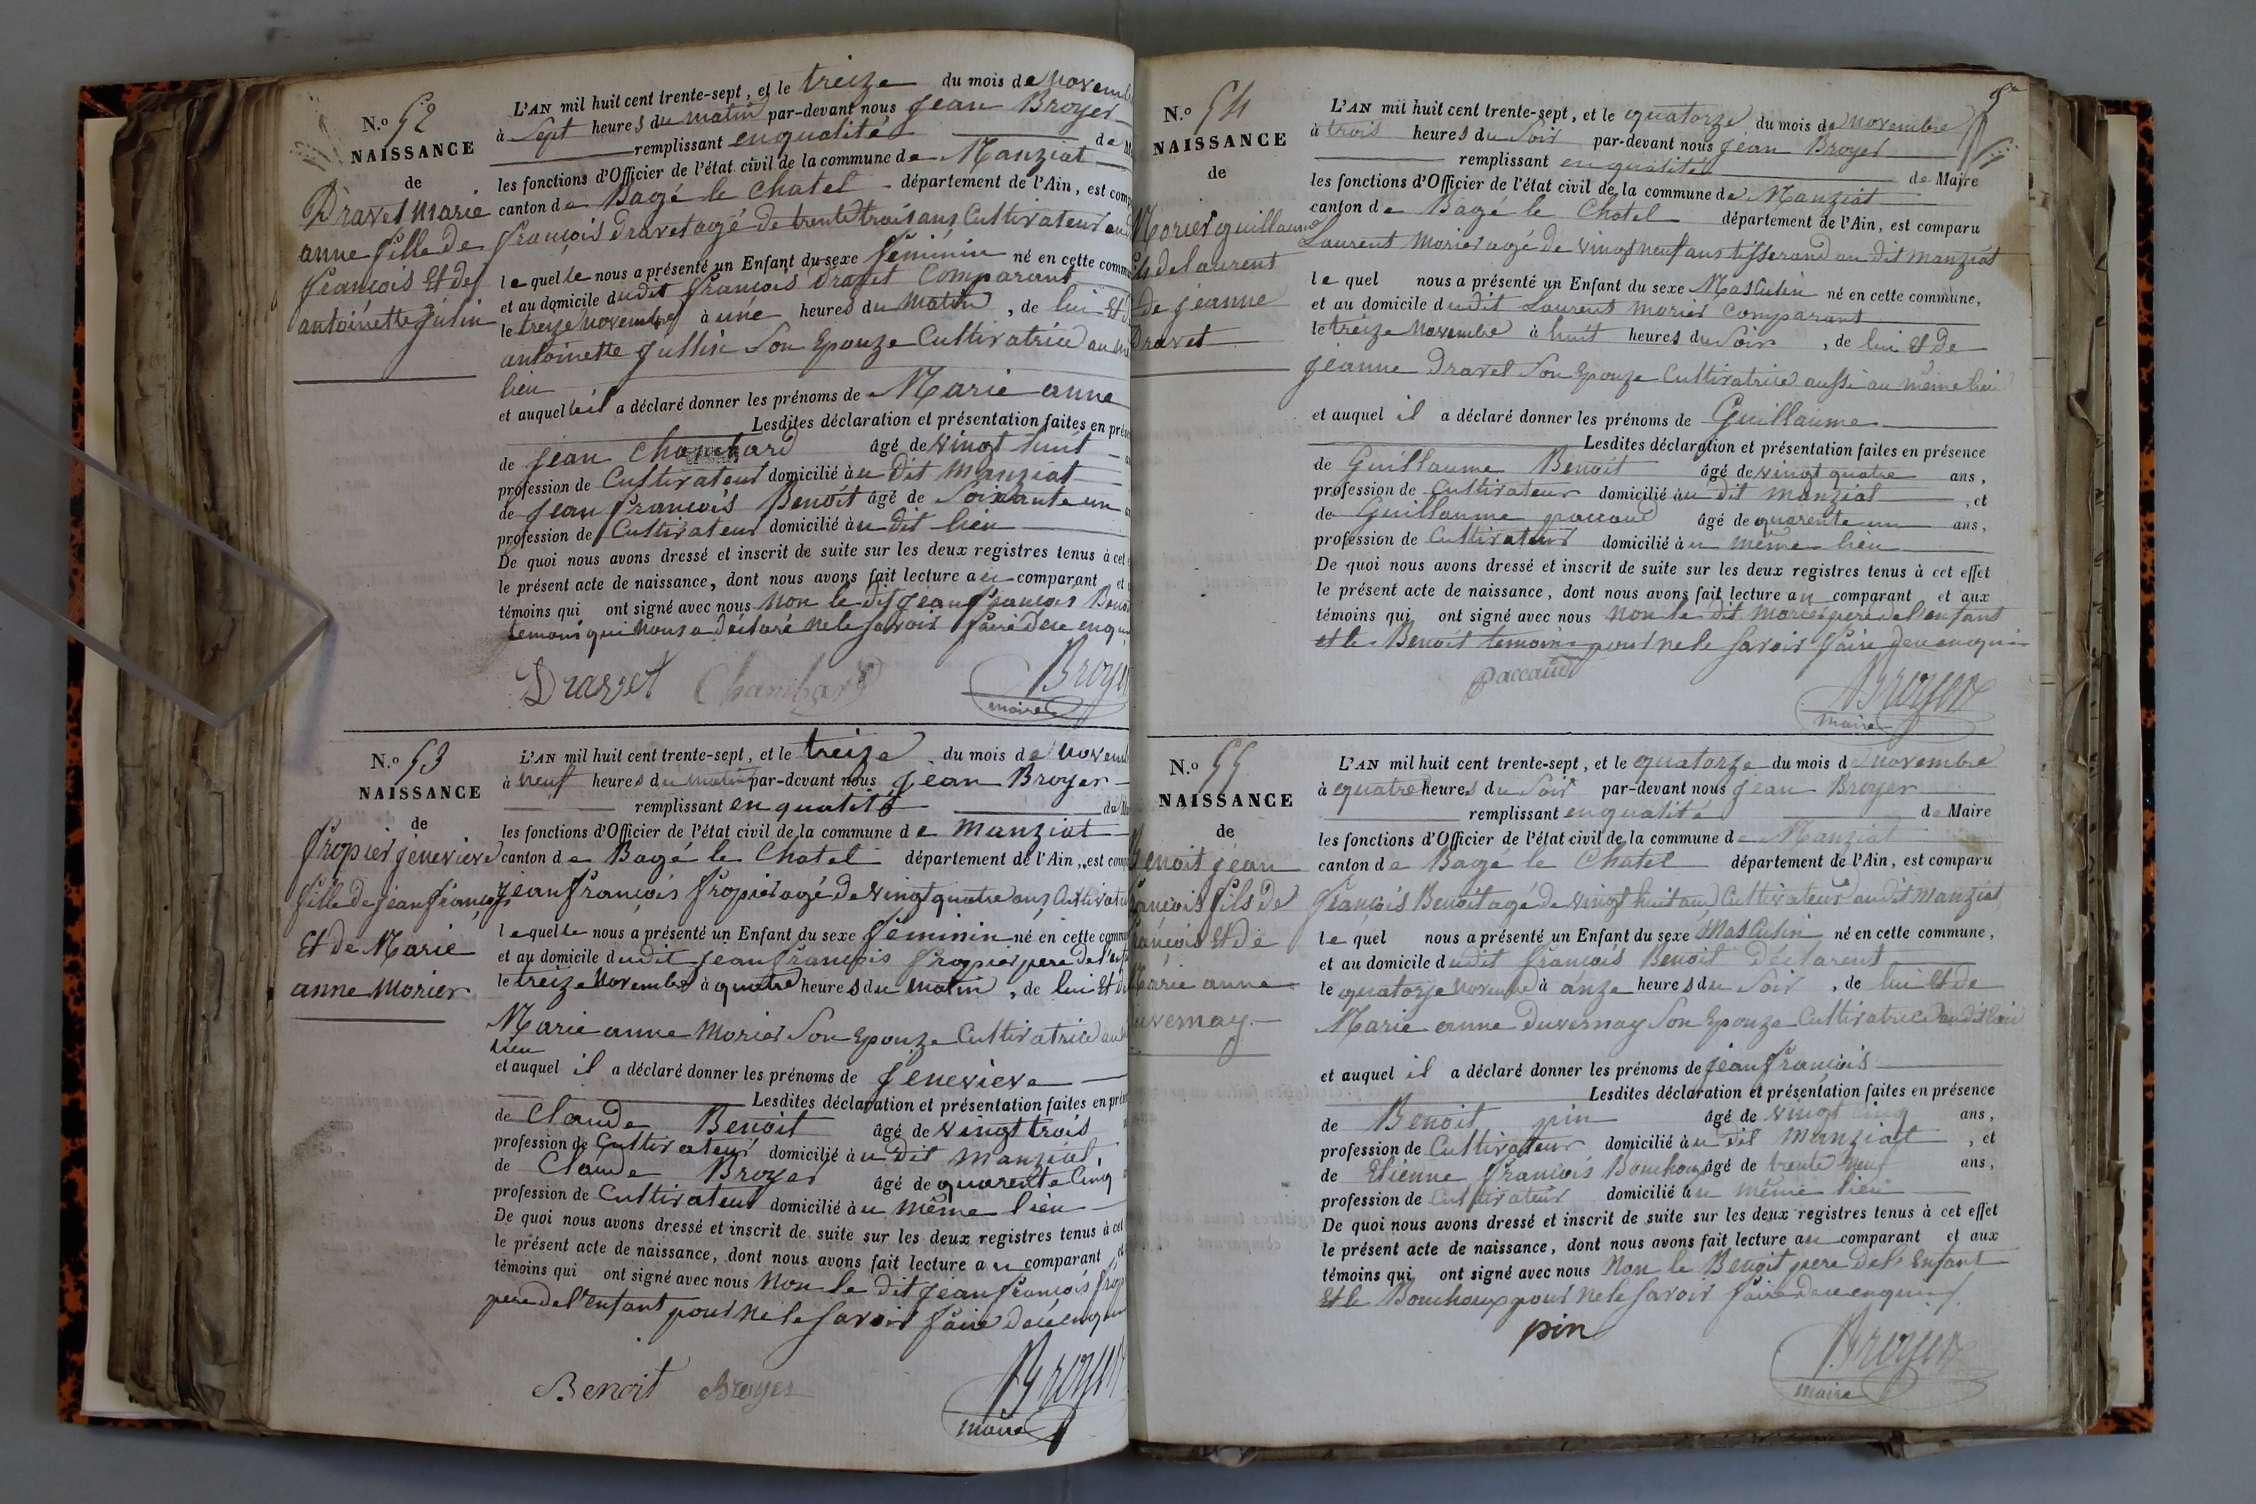 N.o 52
NAISSANCE
de
Dravet Marie
anne fille de
françois Et de
antoinette Jusin
L'AN mil huit cent trente-sept, et le treize du mois de Novemb
à Sept heures du matin par-devant nous Jean Broyer
remplissant en qualité de M
les fonctions d'Officier de l'état civil de la commune de Manziat
canton de Bagé le Chatel département de l'Ain, est comp
françois Dravet agé de trente trois ans Cultivateur au
lequelle nous a présenté un Enfant du sexe féminin né en cette commu
et au domicile dudit françois Dravet Comparant
le treize Novembre à une heures du Matin, de lui Et d
antoinette Jullin Son Epouze Cultivatrice au me
lieu
et auquel il a déclaré donner les prénoms de Marie anne
Lesdites déclaration et présentation faites en prése
de jean Chambard âgé de vingt huit
profession de Cultivateur domicilié àu dit Manziat
de jean françois Benoit âgé de Soixante un
profession de Cultivateur domicilié àu dit lieu
De quoi nous avons dressé et inscrit de suite sur les deux registres tenus à cet
le présent acte de naissance, dont nous avons fait lecture au comparant et
témoins qui ont signé avec nous Non le dit jean françois Benoi
temoins qui Nous a déclaré ne le Savoir faire De ce enqui
Dravet Chambard Broyer
maire
N.o 53
NAISSANCE
de
fropier jenevieve
fille de jean françois
Et de Marie
anne Morier
L'AN mil huit cent trente-sept, et le treize du mois de Novem
à neuf heures du matin par-devant nous jean Broyer
remplissant en qualité de Ma
les fonctions d'Officier de l'état civil de la commune de Manziat
canton de Bagé le Chatel département de l'Ain, est comp
jean françois fropier agé de vingt quatre ans Cultivateu
lequelle nous a présenté un Enfant du sexe féminin né en cette commu
et au domicile dudit jean françois fropier pere de l'enf
le treize Novembre à quatre heures du matin, de lui Et de
Marie anne Morier Son Epouze Cultivatrice au
lieu
et auquel il a déclaré donner les prénoms de jenevieve
Lesdites déclaration et présentation faites en prés
de Claude Benoit âgé de vingt trois
profession de Cultivateur domicilié àu dit Manziat
de Claude Broyer âgé de quarente Cinq
profession de Cultivateur domicilié àu même lieu
De quoi nous avons dressé et inscrit de suite sur les deux registres tenus à cet
le présent acte de naissance, dont nous avons fait lecture au comparant et
témoins qui ont signé avec nous Non le dit jean françois frop
pere de l'enfant pour ne le Savoir faire De ce enqui
Benoit Broyer Broyer
maire
N.o 54
NAISSANCE
de
Morier guillaume
fils de laurent
de jeanne
Dravet
L'AN mil huit cent trente-sept, et le quatorze du mois de Novembre
à trois heures du Soir par-devant nous jean Broyer
remplissant en qualité de Maire
les fonctions d'Officier de l'état civil de la commune de Manziat
canton de Bagé le Chatel département de l'Ain, est comparu
Laurent Morier agé de vingt neuf ans tisserand au dit Manziat
le quel nous a présenté un Enfant du sexe Masculin né en cette commune,
et au domicile dudit Laurent Morier Comparant
le treize Novembre à huit heures du Soir, de lui Et de
jeanne Dravet Son Epouze Cultivatrice aussi au même lieu
et auquel il a déclaré donner les prénoms de Guillaume
Lesdites déclaration et présentation faites en présence
de Guillaume Benoit âgé de vingt quatre ans,
profession de Cultivateur domicilié àu dit Manziat, et
de Guillaume paccaud âgé de quarente un ans,
profession de Cultivateur domicilié àu même lieu
De quoi nous avons dressé et inscrit de suite sur les deux registres tenus à cet effet
le présent acte de naissance, dont nous avons fait lecture au comparant et aux
témoins qui ont signé avec nous Non le dit Morier pere de l'enfant
et le Benoit temoins pour ne le Savoir faire De ce enqui
paccaud Broyer
maire
N.o 55
NAISSANCE
de
Benoit jean
françois fils de
françois Et de
Marie anne
uvernay
L'AN mil huit cent trente-sept, et le quatorze du mois de Novembre
à quatre heures du Soir par-devant nous jean Broyer
remplissant en qualité de Maire
les fonctions d'Officier de l'état civil de la commune de Manziat
canton de Bagé le Chatel département de l'Ain, est comparu
françois Benoit agé de vingt huit ans Cultivateur au dit Manziat
le quel nous a présenté un Enfant du sexe Masculin né en cette commune,
et au domicile dudit françois Benoit Déclarent
le quatorze Novembre à onze heures du Soir, de lui Et de
Marie anne Duvernay Son Epouze Cultivatrice au dit lieu
et auquel il a déclaré donner les prénoms de jean françois
Lesdites déclaration et présentation faites en présence
de Benoit pin âgé de vingt cinq ans,
profession de Cultivateur domicilié àu dit Manziat, et
de Etienne françois Bouchoux âgé de trente neuf ans,
profession de Cultivateur domicilié àu même lieu
De quoi nous avons dressé et inscrit de suite sur les deux registres tenus à cet effet
le présent acte de naissance, dont nous avons fait lecture au comparant et aux
témoins qui ont signé avec nous Non le Benoit pere De l'Enfant
Et le Bouchoux pour ne le Savoir faire De ce enqui
pin Broyer
maire